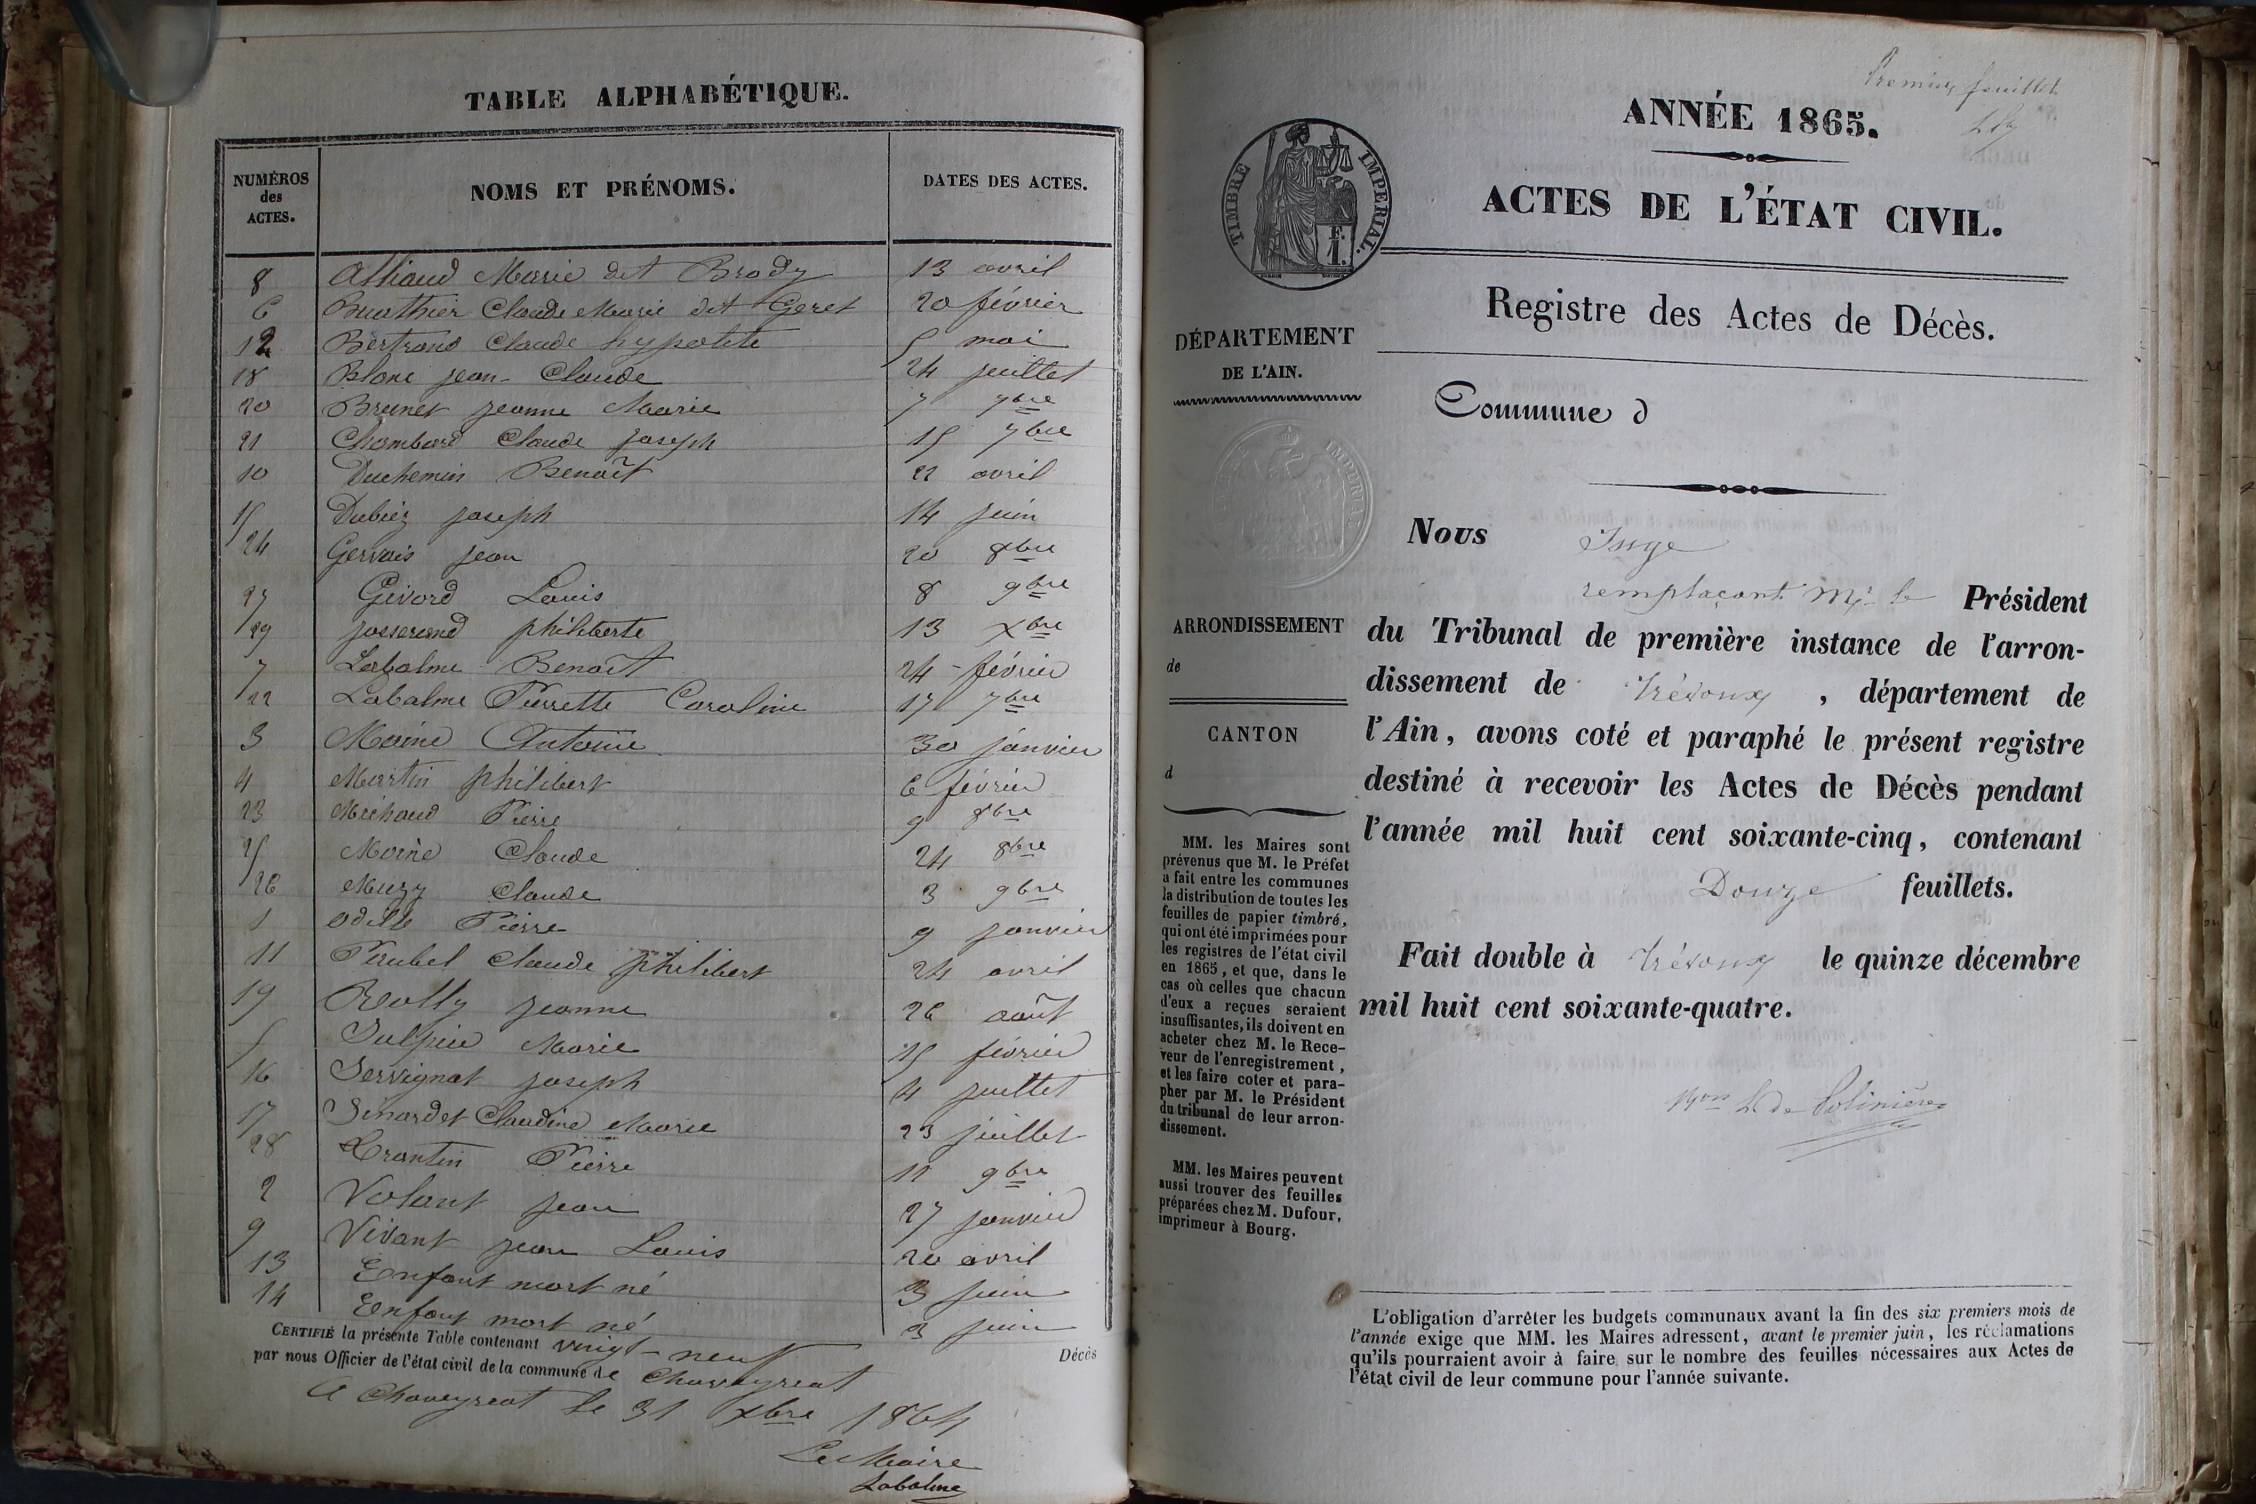 TABLE ALPHABÉTIQUE.
NUMÉROS des ACTES. NOMS ET PRÉNOMS. DATES DES ACTES.
8 Alliaud Marie dit Brody 13 avril
6 Buathier Claude Marie dit Geret 20 février
12 Bertrand Claude hypolite 5 mai
18 Blanc jean-Claude 24 juillet
20 Brunet jeanne Marie 7 7bre
21 Chambard Claude joseph 15 7bre
10 Duchemin Benoît 22 avril
15 Dubiez joseph 14 juin
24 Gervais jean 20 8bre
27 Givord Louis 8 9bre
29 josserand philiberte 13 xbre
7 Labalme Benoît 24 février
22 Labalme Pierrette Caroline 17 7bre
3 Moine Antoine 30 janvier
4 Martin philibert 6 février
23 Michaud Pierre 9 8bre
25 Moine Claude 24 8bre
26 Muzy Claude 3 9bre
1 Odille Pierre 9 janvier
11 Perubel Claude philibert 24 avril
19 Revolly jeanne 26 août
5 Sulpice Marie 15 février
16 Servignat joseph 4 juillet
17 Simardet Claudine Marie 23 juillet
28 Trontin Pierre 11 9bre
2 Volant jean 27 janvier
9 Vivant jean Louis 20 avril
13 Enfant mort né 3 juin
14 Enfant mort né 3 juin
CERTIFIÉ la présente Table contenant vingt-neuf Décès
par nous Officier de l'état civil de la commune de Chaveyreat
A Chaveyreat le 31 xbre 1864
Le Maire
Labalme
Premier feuillet
ANNÉE 1865.
TIMBRE IMPERIAL.
F. 1.
ACTES DE L'ÉTAT CIVIL.
Registre des Actes de Décès.
DÉPARTEMENT
DE L'AIN.
Commune d
Nous Juge
remplaçant Mr le Président
ARRONDISSEMENT
de
CANTON
d
du Tribunal de première instance de l'arron-
dissement de Trévoux, département de
l'Ain, avons coté et paraphé le présent registre
destiné à recevoir les Actes de Décès pendant
l'année mil huit cent soixante-cinq, contenant
Douze feuillets.
Fait double à Trévoux le quinze décembre
mil huit cent soixante-quatre.
MM. les Maires sont
prévenus que M. le Préfet
a fait entre les communes
la distribution de toutes les
feuilles de papier timbré,
qui ont été imprimées pour
les registres de l'état civil
en 1865, et que, dans le
cas où celles que chacun
d'eux a reçues seraient
insuffisantes, ils doivent en
acheter chez M. le Rece-
veur de l'enregistrement,
et les faire coter et para-
pher par M. le Président
du tribunal de leur arron-
dissement.
MM. les Maires peuvent
aussi trouver des feuilles
préparées chez M. Dufour,
imprimeur à Bourg.
L'obligation d'arrêter les budgets communaux avant la fin des six premiers mois de
l'année exige que MM. les Maires adressent, avant le premier juin, les réclamations
qu'ils pourraient avoir à faire sur le nombre des feuilles nécessaires aux Actes de
l'état civil de leur commune pour l'année suivante.